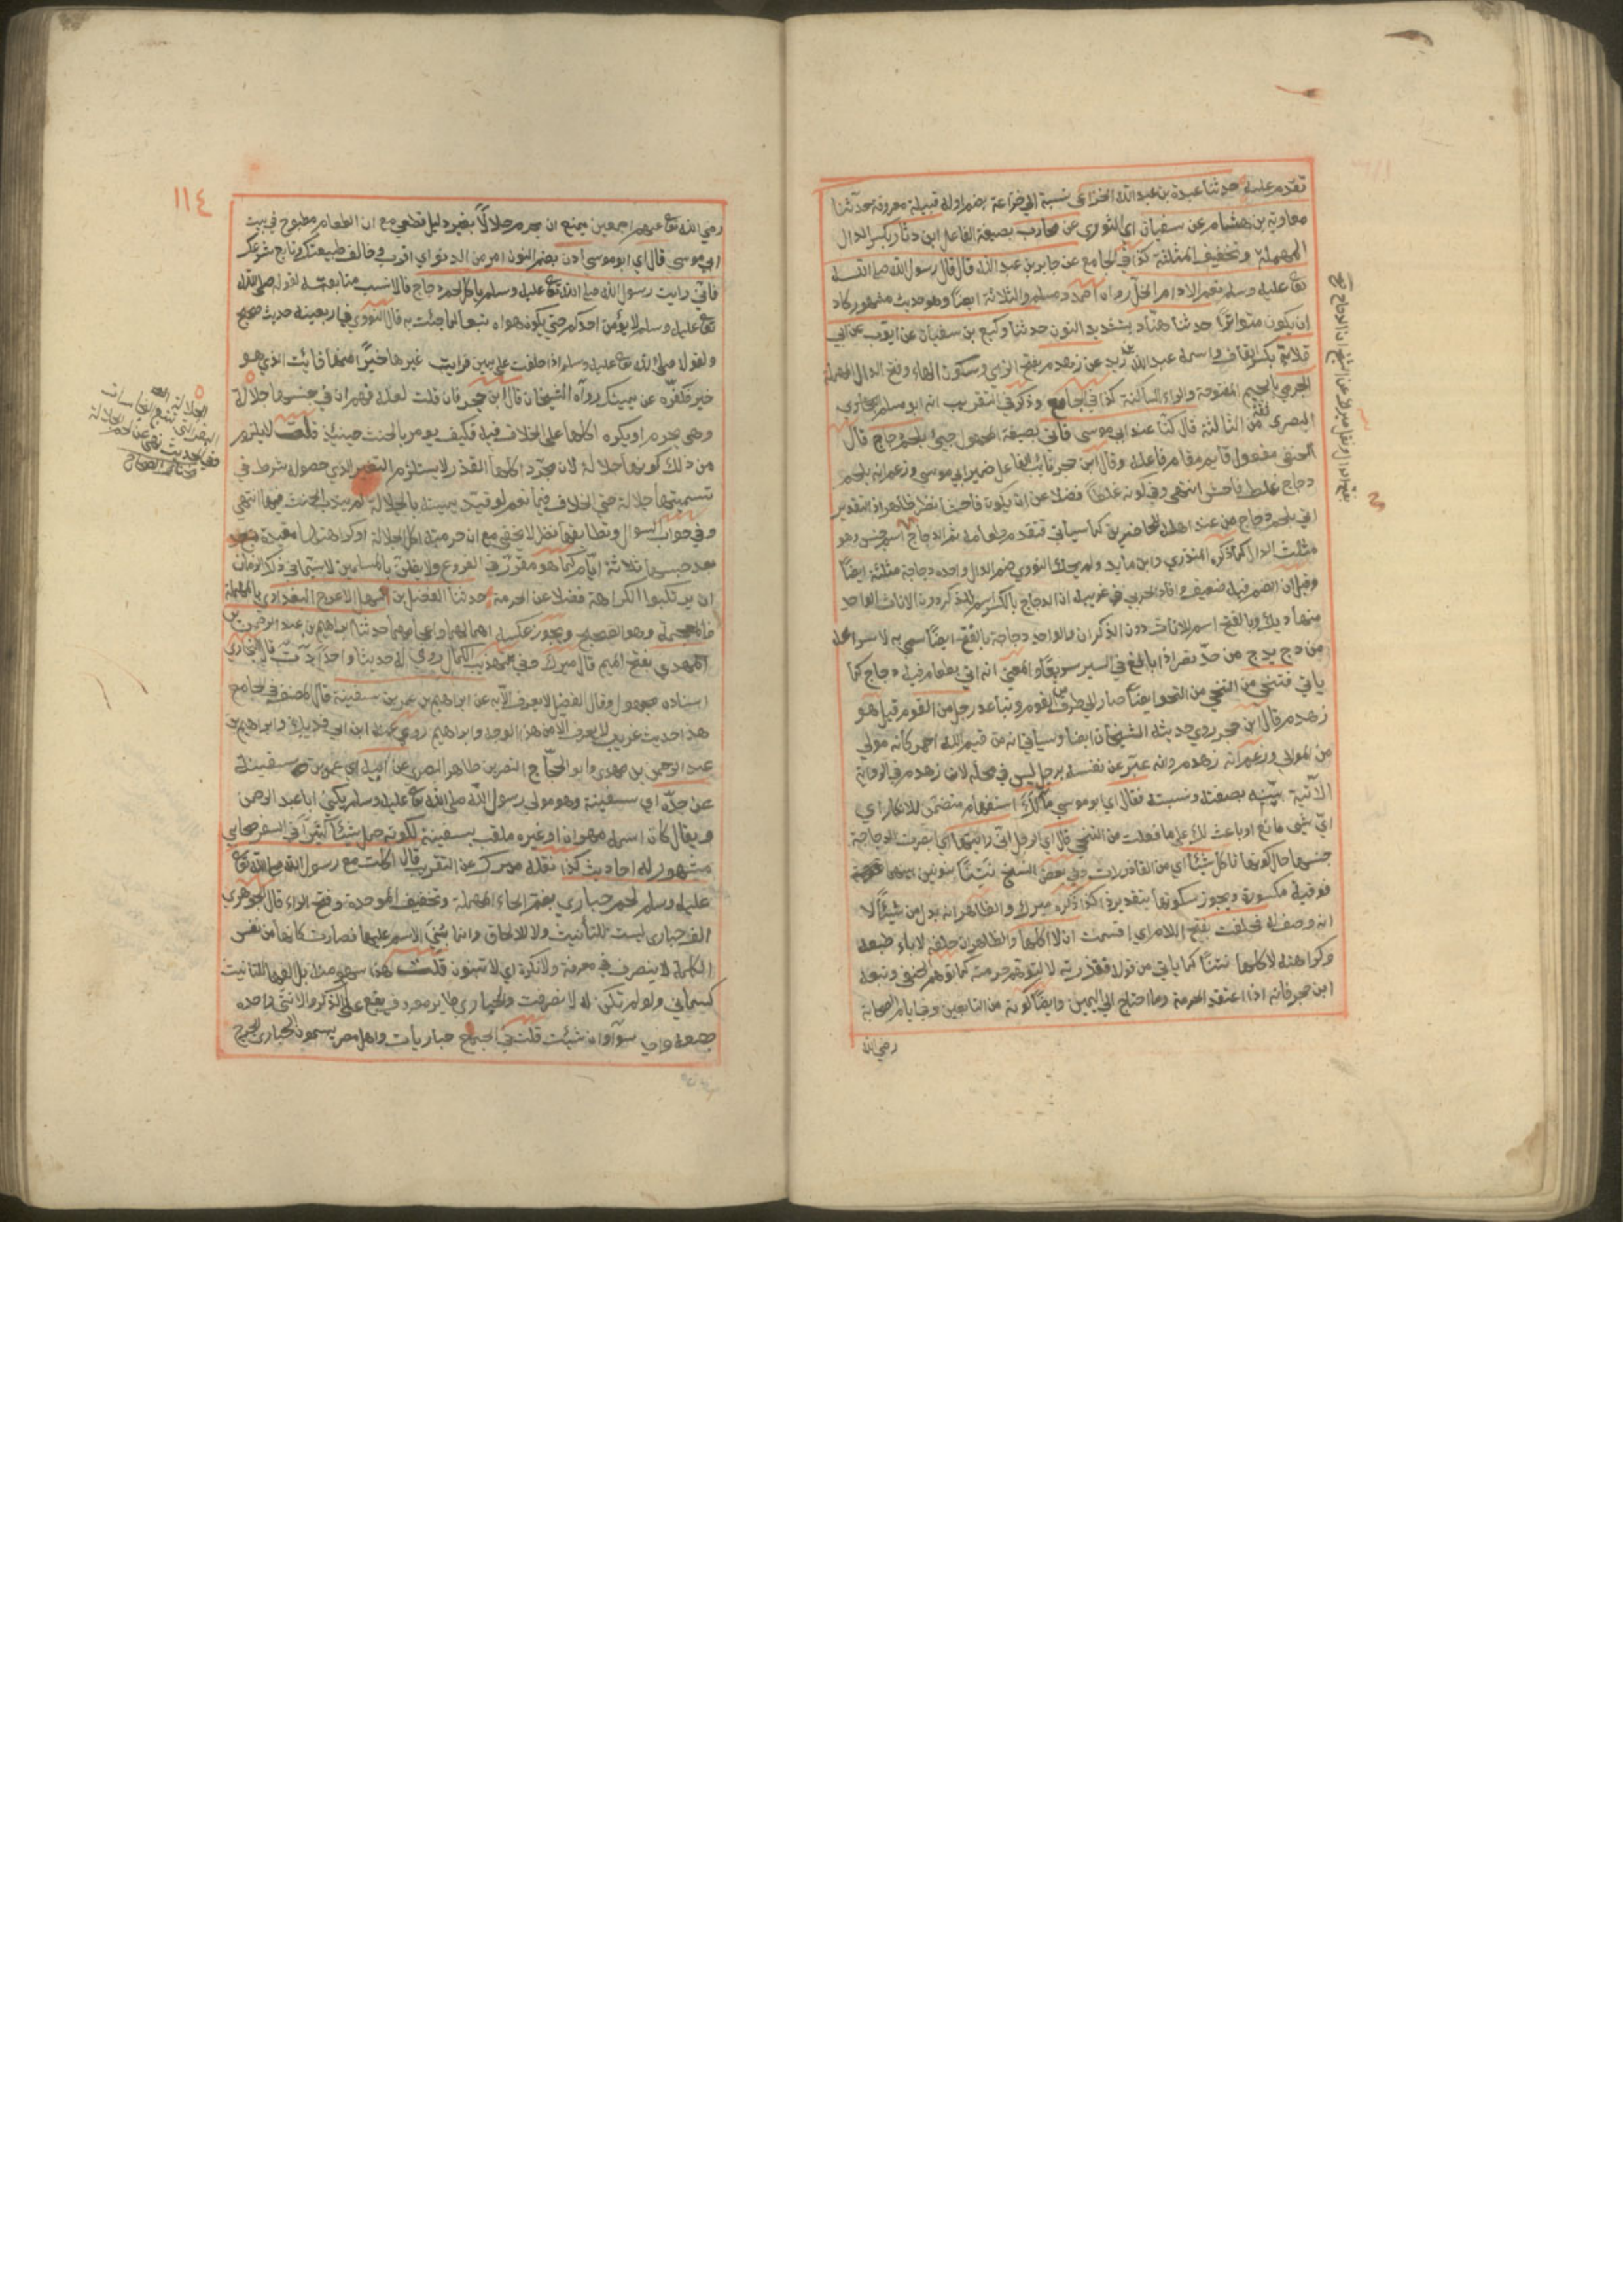 تقدم عليه حدثنا عبدة بن عبد الله الخزاعي نسبة الى خزاعة بضم اوله قبيلة معروفة حدثنا
معاوية بن هشام عن سفيان اي الثوري عن محارب بصيغة الفاعل ابن دثار بكسر الدال
المهملة وتخفيف المثلثة كذا في الجامع عن جابر بن عبد الله قال قال رسول الله صلى الله
تعا عليه وسلم نعم الادام الخل رواه احمد ومسلم والثلاثة ايضا وهو حديث مشهور كاد
ان يكون متواترا حدثنا هناد بتشديد النون حدثنا وكيع عن سفيان عن ايوب عن ابي
قلابة بكسر القاف واسمه عبد الله بن زيد عن زهدم بفتح الزاي وسكون الهاء وفتح الدال المهملة
الجرمي بالجيم المفتوحة والراء الساكنة كذا في الجامع وذكر في التقريب انه ابو مسلم
البصري ثقة من الثالثة قال كنا عند ابي موسى فاتي بصيغة المجهول جيئ بلحم دجاج قال
الحنفي مفعول قايم مقام فاعله وقال ابن حجر نائب الفاعل ضمير ابي موسى وزعم انه بلحم
دجاج غلط فاحش انتهى وفي كونه غلطا فضلا عن ان يكون فاحشا نظر ظاهر اذ التقدير
اتي بلحم دجاج من عند اهله للحاضرين كما سياتي فتقدم طعامه ثم الدجاج اسم جنس وهو
مثلث الدال كما ذكره المنذري وابن مالك ولم يحك النووي ضم الدال واحده دجاجة مثلثة ايضا
وقيل ان الضم فيه ضعيف وافاد الحربي في غريبه ان الدجاج بالكسر اسم للذكر دون الاناث الواحد
منها ديك وبالفتح اسم للاناث دون الذكران والواحد دجاجة بالفتح ايضا سمي به لاسراعه
من دج يدج من حد نصر اذا بالغ في السير سريعا والمعنى انه اتي بطعام فيه دجاج كما
ياتي فتنحى من التنحي من النحو ايضا صار الى طرف من القوم وتباعد رجل من القوم قيل هو
زهدم قال ابن حجر روى حديثه الشيخان ايضا وسياتي انه من تيم الله احمر كانه مولى
من الموالي وزعم انه زهدم وانه عبر عن نفسه برجل ليس في محله لان زهدم في الرواية
الآتية بينه بصفته ونسبته فقال اي ابو موسى ما لك استفهام متضمن للانكار اي
اي شيئ مانع او باعث لك على ما فعلت من التنحي قال اي الرجل اني رايتها اي ابصرت الدجاجة
جنسها حال كونها تاكل شيئا اي من القاذورات وفي بعض النسخ نتنا بنونين بينهما
فوقية مكسورة ويجوز سكونها بتقديره كذا ذكره ميرك والظاهر انه بدل من شيئا لا
انه وصف له فحلفت بفتح اللام اي اقسمت ان لا اكلها والظاهر ان حلفه لاباء طبعه
وكراهته لاكلها نتنا كما ياتي من قوله فقذرته لا لتوهم حرمته كما توهم الحنفي وتبعه
ابن حجر فانه اذا اعتقد الحرمة وما احتاج الى اليمين وايضا كونه من التابعين وفي ايام الصحابة
رضي الله
١١٤
رضي الله تعا عنهم اجمعين يمنع ان يحرم حلالا بغير دليل قطعي مع ان الطعام مطبوخ في بيت
ابي موسى قال اي ابو موسى ادن بضم النون امر من الدنو اي اقرب وخالف طبيعتك وتابع شرعك
فاني رايت رسول الله صلى الله تعا عليه وسلم ياكل لحم دجاج فالانسب متابعته لقوله صلى الله
تعا عليه وسلم لا يؤمن احدكم حتى يكون هواه تبعا لما جئت به قال النووي في اربعينه حديث صحيح
ولقوله صلى الله تعا عليه وسلم اذا حلفت على يمين فرايت غيرها خيرا منها فائت الذي هو
خير وكفره عن يمينك رواه الشيخان قال ابن حجر فان قلت لعله فهم ان في جنسها جلالة
وهي يحرم او يكره اكلها على الخلاف فيه فكيف يومر بالحنث حينئذ قلت لا يلزم
من ذلك كونها جلالة لان مجرد اكلها القذر لا يستلزم التغير الذي حصوله شرط في
تسميتها جلالة حتى الخلاف فيها نعم لو قيد يمينه بالجلالة لم يندب الحنث فيها انتهى
وفي جواب السوال وتطابقها نظر لا يخفى مع ان حرمته اكل الجلالة او كراهتها مقيدة
بعد حبسها ثلاثة ايام كما هو مقرر في الفروع ولا يظن بالمسلمين لا سيما في ذلك الزمان
ان يرتكبوا الكراهة فضلا عن الحرمة حدثنا الفضل بن سهل الاعرج البغدادي بالمهملة
فالمعجمة وهو الفصيح ويجوز عكسه اهمالهما واعجامهما حدثنا ابراهيم بن عبد الرحمن بن
المهدي بفتح الميم قال ميرك وفي تهذيب الكمال روى له حديثا واحدا د ت قال البخاري
اسناده مجهول وقال الفضل لا يعرف الا به عن ابراهيم بن عمر بن سفينة قال المصنف في الجامع
هذا حديث غريب لا يعرف الا من هذا الوجه وابراهيم روى عنه ابن ابي فديك وابراهيم بن
عبد الرحمن بن مهدي وابو الحجاج النضر بن طاهر البصري عن ابيه اي عمر بن سفينة
عن جده اي سفينة وهو مولى رسول الله صلى الله تعا عليه وسلم يكنى ابا عبد الرحمن
ويقال كان اسمه مهران او غيره ملقب بسفينة لكونه حمل شيئا كثيرا في السفر صحابي
مشهور له احاديث كذا نقله ميرك عن التقريب قال اكلت مع رسول الله صلى الله تعا
عليه وسلم لحم حبارى بضم الحاء المهملة وتخفيف الموحدة وفتح الراء قال الجوهري
الف حبارى ليست للتأنيث ولا للالحاق وانما بني الاسم عليها فصارت كانها من نفس
الكلمة لا ينصرف في معرفة ولا نكرة اي لا تنون قلت هذا سهو منه بل الفها للتانيث
كسماني ولو لم تكن له لانصرفت والحبارى طاير معروف يقع على الذكر والانثى واحده
وجمعه سوآء وان شئت قلت في الجمع حباريات واهل مصر يسمون الحبارى الحبرج
الجلالة البقرة التي تتبع النجاسات
وفي الحديث نهى عن لحم الجلالة